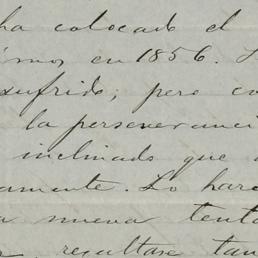 ha colocado el
en 1856.
sufrido; pero co
la perseveranci
inclinado que
amente. Lo hare
a nueva tenta
resultase tan